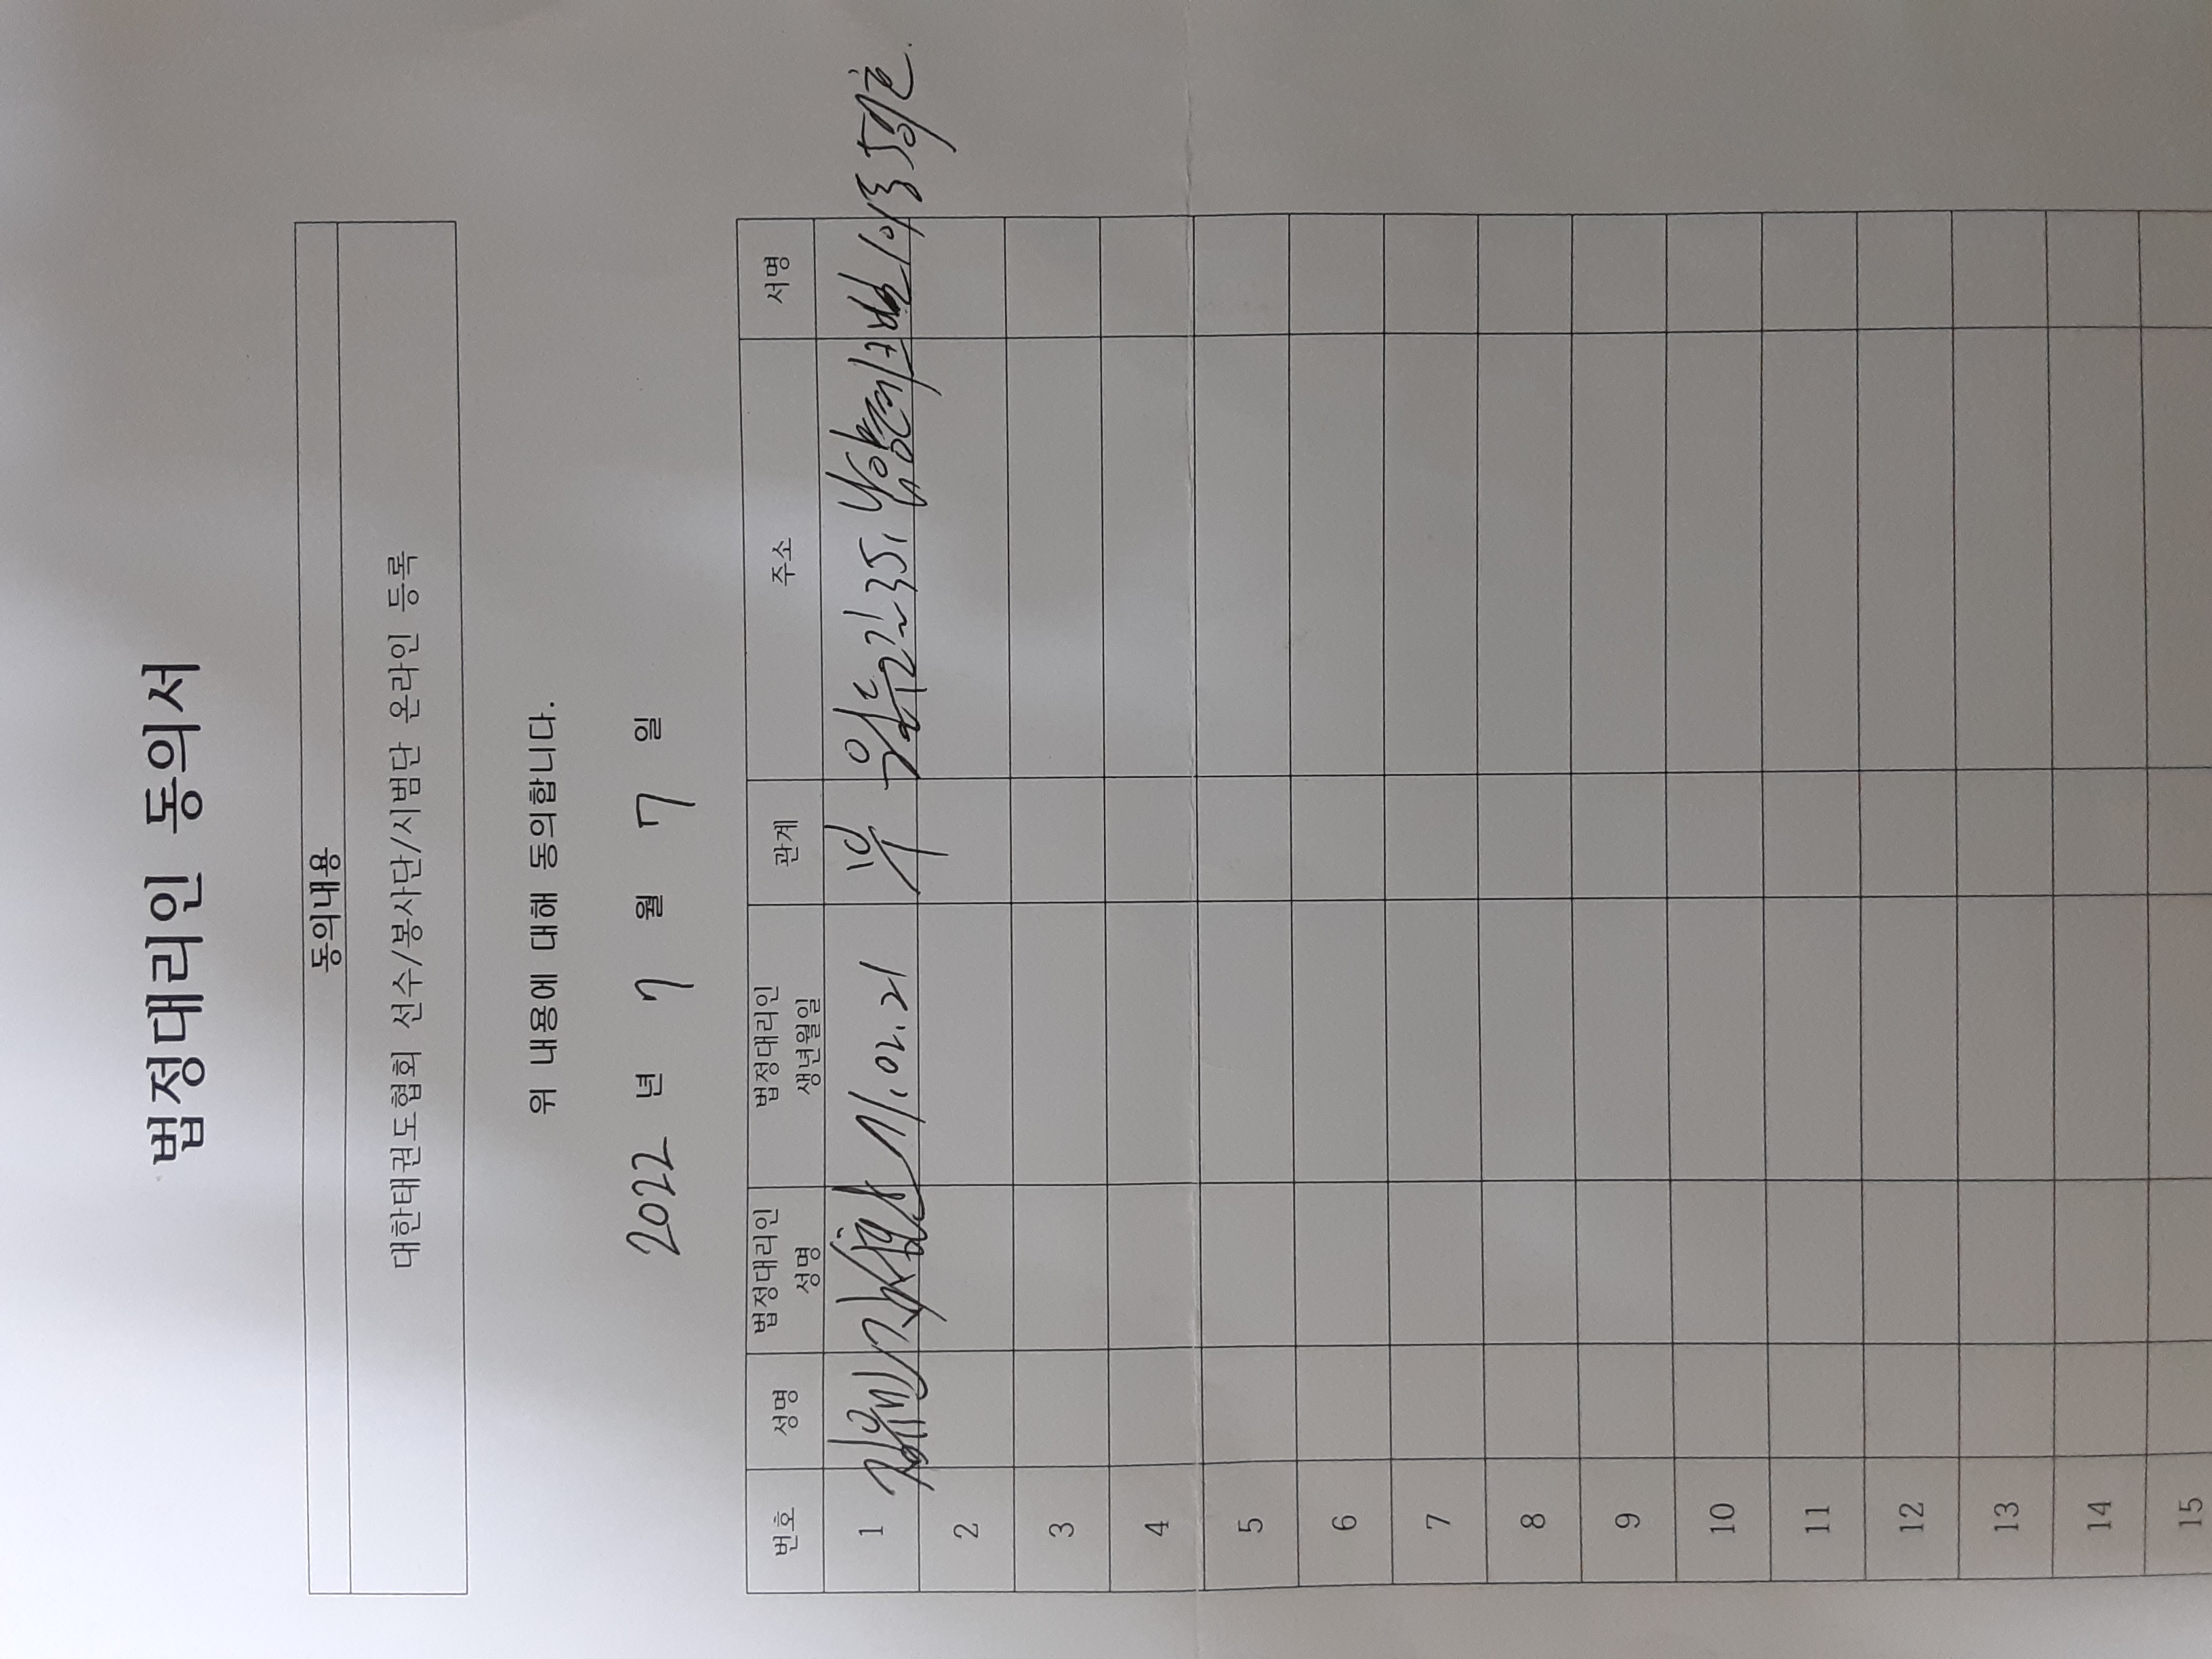 법정대리인 동의서
동의내용
대한태권도협회 선수/봉사단/시범단 온라인 등록
위 내용에 대해 동의합니다.
2022 년 7 월 7 일
번호 성명 법정대리인 성명 법정대리인 생년월일 관계 주소 서명
1 71.02.21 부 35,
2
3
4
5
6
7
8
9
10
11
12
13
14
15